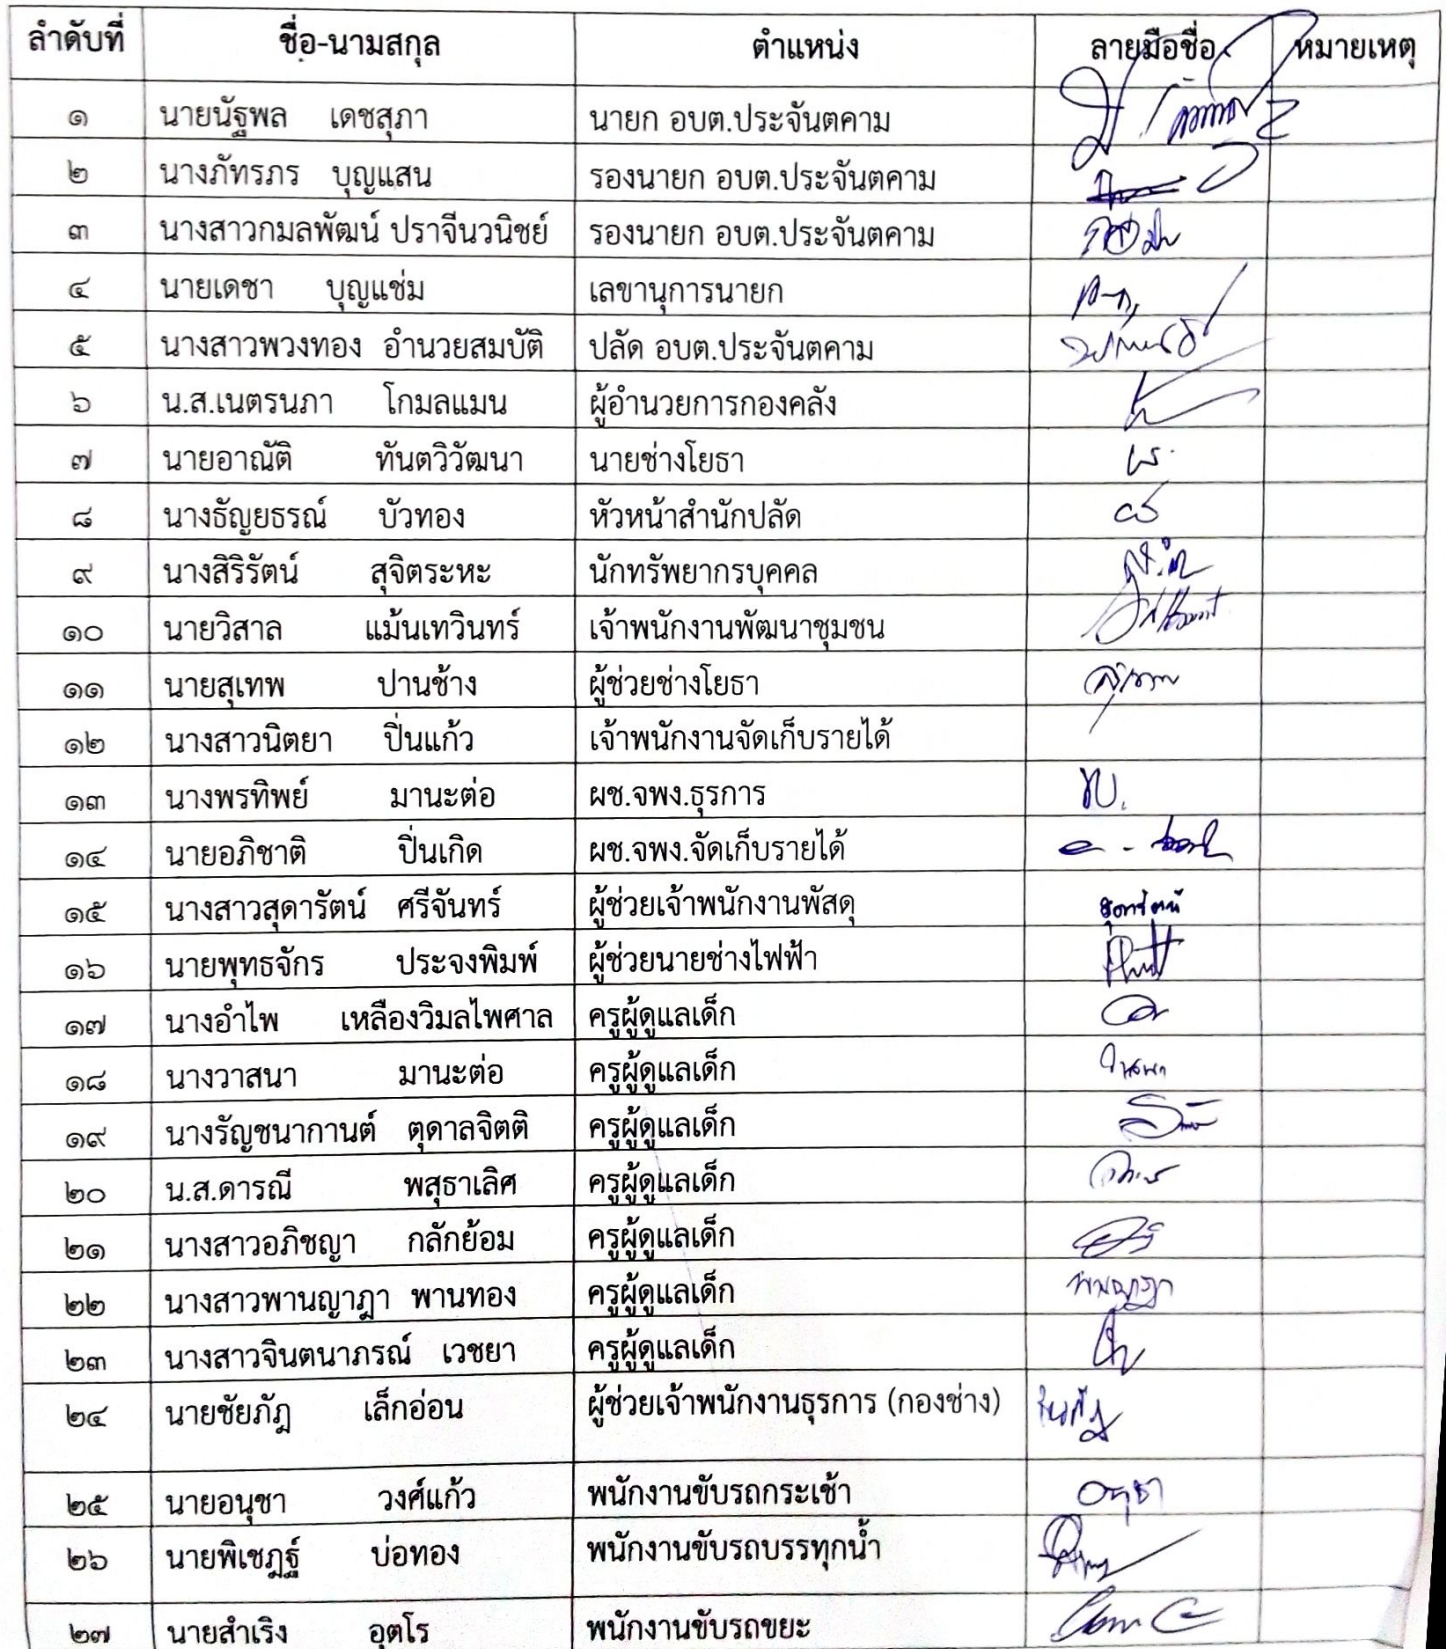 ลำดับที่ ชื่อ-นามสกุล ตำแหน่ง ลายมือชื่อ หมายเหตุ
๑ นายนัฐพล เดชสุภา นายก อบต.ประจันตคาม
๒ นางภัทรภร บุญแสน รองนายก อบต.ประจันตคาม
๓ นางสาวกมลพัฒน์ ปราจีนวนิชย์ รองนายก อบต.ประจันตคาม
๔ นายเดชา บุญแช่ม เลขานุการนายก
๕ นางสาวพวงทอง อำนวยสมบัติ ปลัด อบต.ประจันตคาม
๖ น.ส.เนตรนภา โกมลแมน ผู้อำนวยการกองคลัง
๗ นายอาณัติ ทันตวิวัฒนา นายช่างโยธา
๘ นางธัญยธรณ์ บัวทอง หัวหน้าสำนักปลัด
๙ นางสิริรัตน์ สุจิตระหะ นักทรัพยากรบุคคล
๑๐ นายวิสาล แม้นเทวินทร์ เจ้าพนักงานพัฒนาชุมชน
๑๑ นายสุเทพ ปานช้าง ผู้ช่วยช่างโยธา
๑๒ นางสาวนิตยา ปิ่นแก้ว เจ้าพนักงานจัดเก็บรายได้
๑๓ นางพรทิพย์ มานะต่อ ผช.จพง.ธุรการ
๑๔ นายอภิชาติ ปิ่นเกิด ผช.จพง.จัดเก็บรายได้
๑๕ นางสาวสุดารัตน์ ศรีจันทร์ ผู้ช่วยเจ้าพนักงานพัสดุ สุดารัตน์
๑๖ นายพุทธจักร ประจงพิมพ์ ผู้ช่วยนายช่างไฟฟ้า
๑๗ นางอำไพ เหลืองวิมลไพศาล ครูผู้ดูแลเด็ก
๑๘ นางวาสนา มานะต่อ ครูผู้ดูแลเด็ก
๑๙ นางรัญชนากานต์ ตุดาลจิตติ ครูผู้ดูแลเด็ก
๒๐ น.ส.ดารณี พสุธาเลิศ ครูผู้ดูแลเด็ก
๒๑ นางสาวอภิชญา กลักย้อม ครูผู้ดูแลเด็ก
๒๒ นางสาวพานญาฎา พานทอง ครูผู้ดูแลเด็ก
๒๓ นางสาวจินตนาภรณ์ เวชยา ครูผู้ดูแลเด็ก
๒๔ นายชัยภัฎ เล็กอ่อน ผู้ช่วยเจ้าพนักงานธุรการ (กองช่าง)
๒๕ นายอนุชา วงศ์แก้ว พนักงานขับรถกระเช้า อนุชา
๒๖ นายพิเชฎฐ์ บ่อทอง พนักงานขับรถบรรทุกน้ำ
๒๗ นายสำเริง อุตโร พนักงานขับรถขยะ